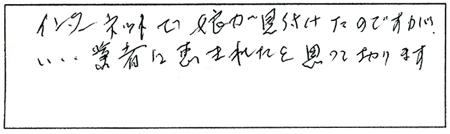 インターネットで娘が見付けたのですが、
いい業者に恵まれたと思っております